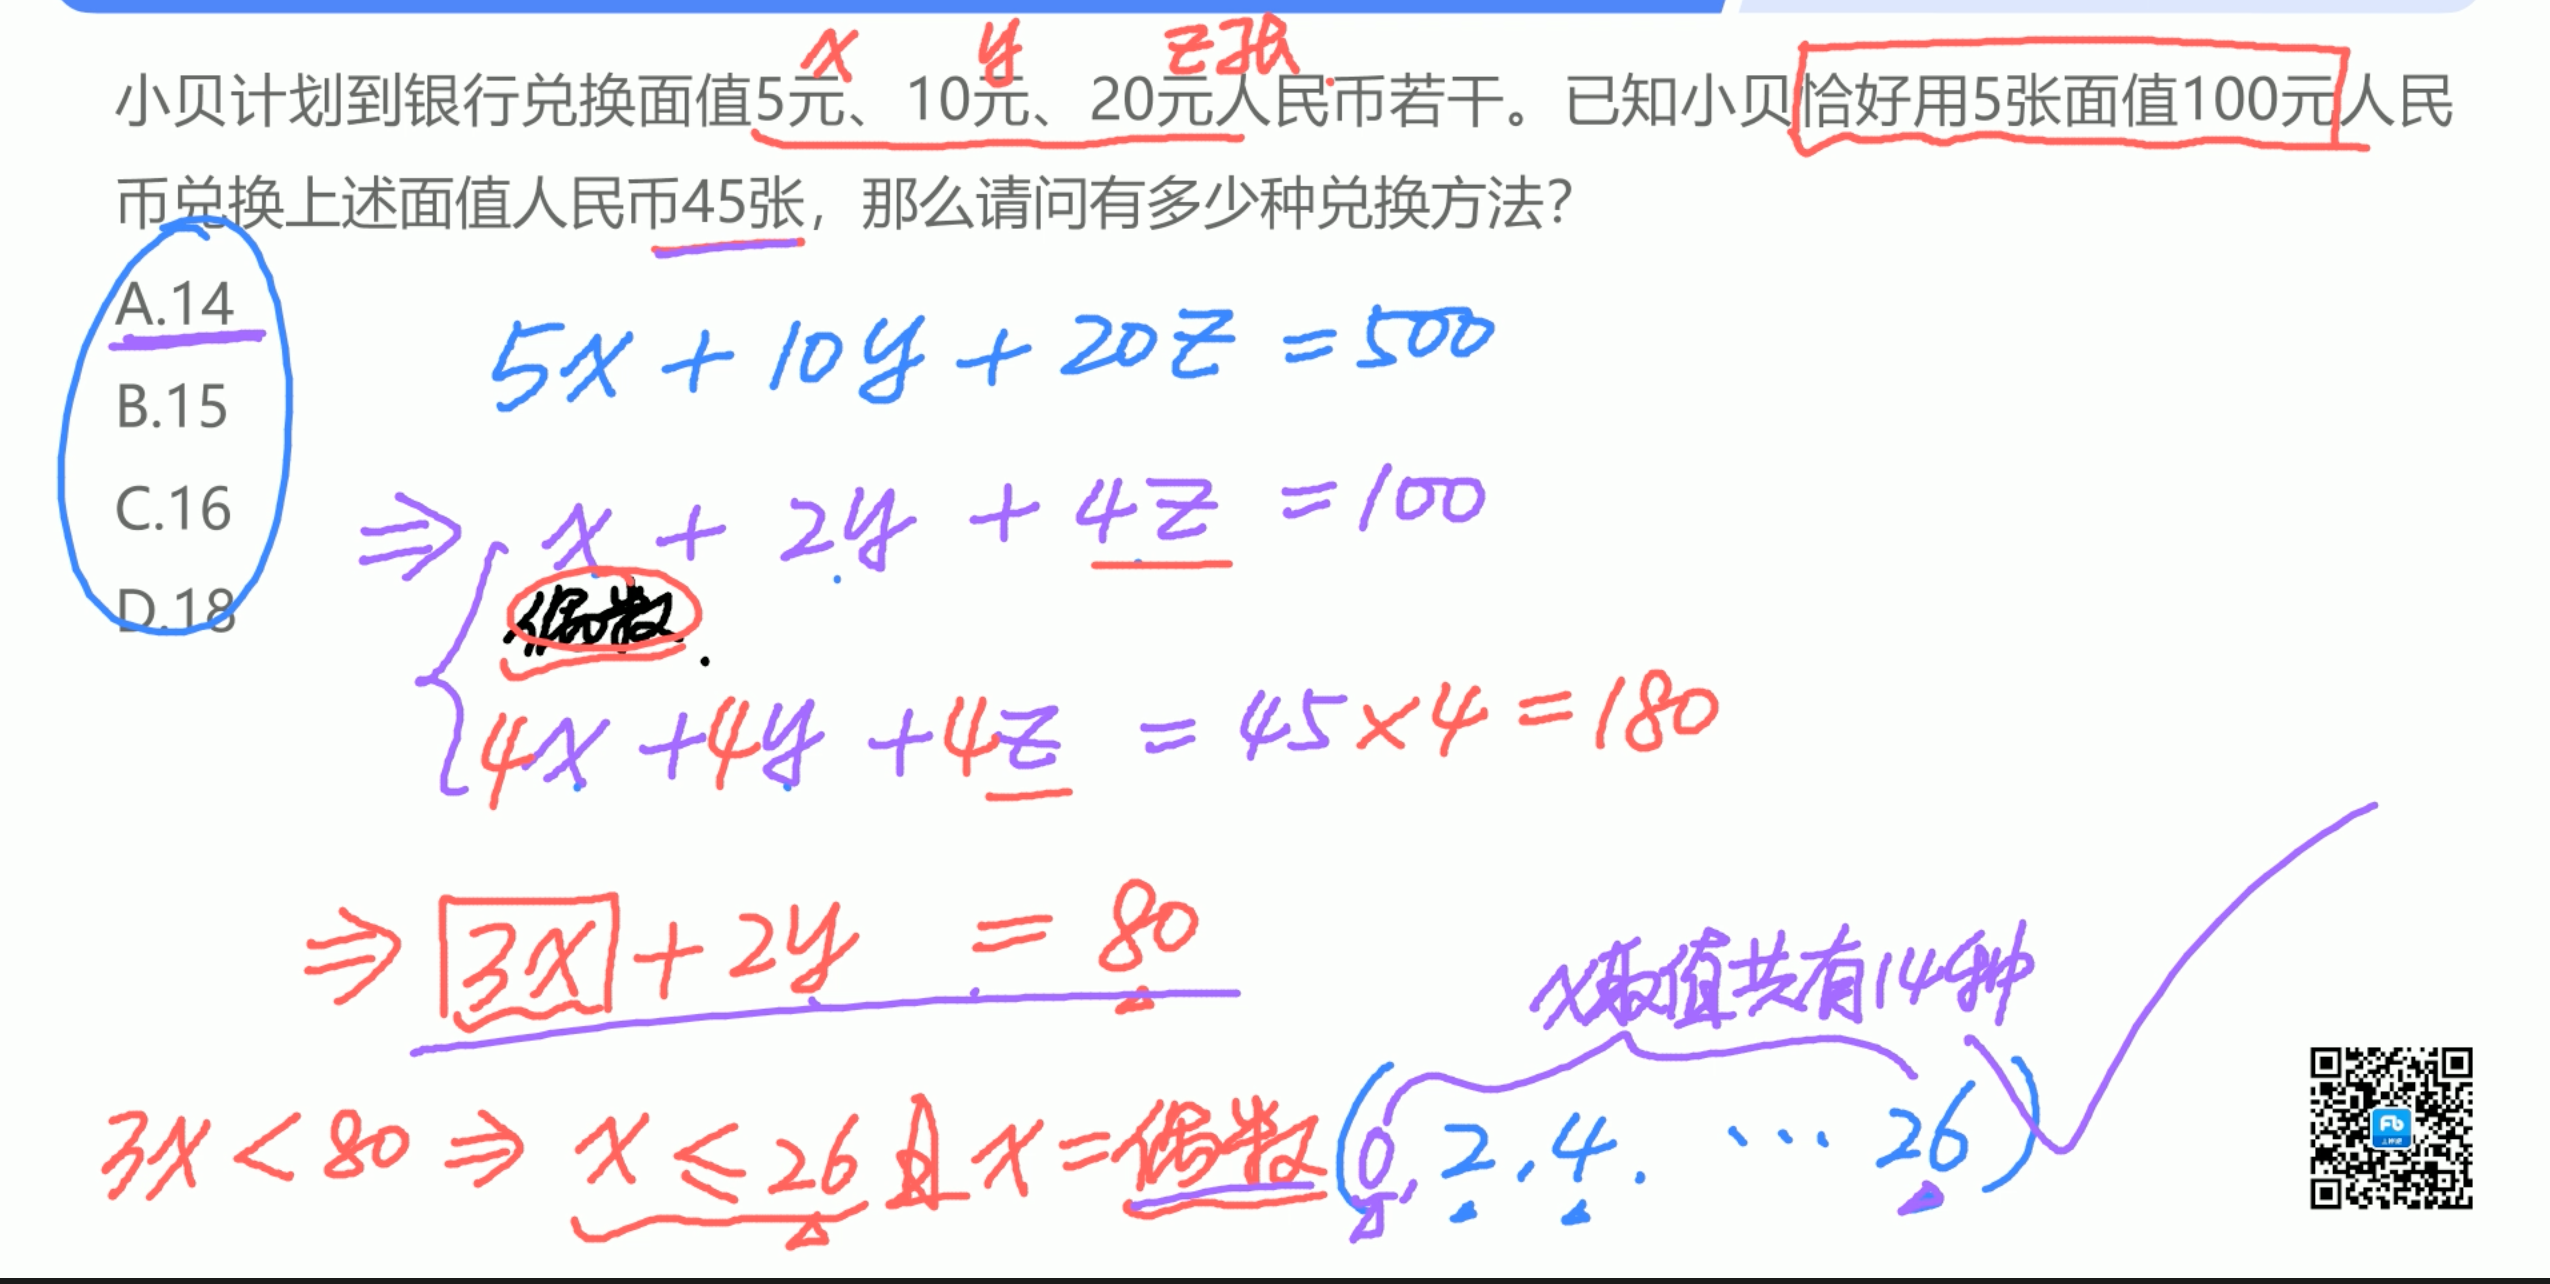 x y z张.
小贝计划到银行兑换面值5元、10元、20元人民币若干。已知小贝恰好用5张面值100元人民
币兑换上述面值人民币45张，那么请问有多少种兑换方法？
A.14
B.15
C.16
D.18
5x + 10y + 20z = 500
⇒ x + 2y + 4z = 100
偶数
4x + 4y + 4z = 45 × 4 = 180
⇒ 3x + 2y = 80
x取值共有14种
3x < 80 ⇒ x ≤ 26 且 x = 偶数 (0, 2, 4, … 26)
Fb